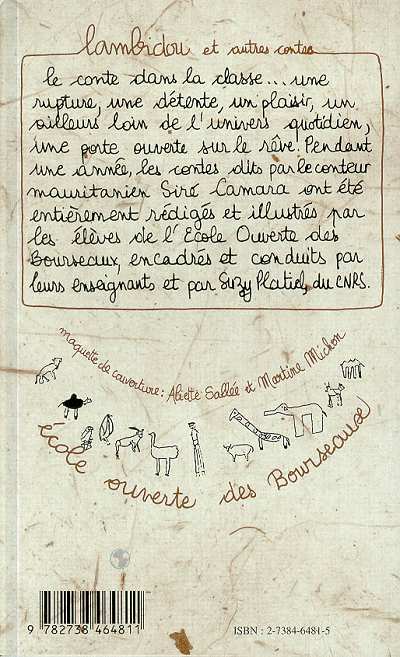 Lambidou et autres contes
le conte dans la classe... une
rupture, une détente, un plaisir, un
ailleurs loin de l'univers quotidien,
une porte ouverte sur le rêve. Pendant
une année, les contes dits par le conteur
mauritanien Siré Camara ont été
entièrement rédigés et illustrés par
les élèves de l'Ecole Ouverte des
Bourseaux, encadrés et conduits par
leurs enseignants et par Suzy Platiel, du CNRS.
maquette de couverture: Aliette Sallée et Martine Michon
école ouverte des Bourseaux
9 782738 464811
ISBN : 2-7384-6481-5